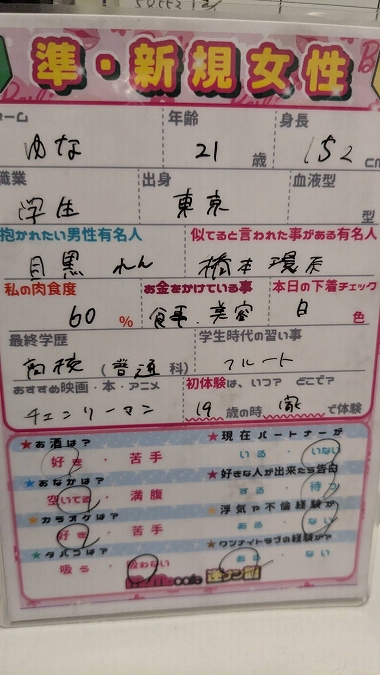 準・新規女性
ーム 年齢 身長
ゆな 21 歳 152 cm
職業 出身 血液型
学生 東京 型
抱かれたい男性有名人 似てると言われた事がある有名人
目黒 れん 橋本環奈
私の肉食度 お金をかけている事 本日の下着チェック
60 % 食事、美容 白 色
最終学歴 学生時代の習い事
高校 (普通 科) フルート
おすすめ映画・本・アニメ 初体験は、いつ? どこで?
チェンソーマン 19 歳の時 家 で体験
★お酒は? ★現在パートナーが
好き・苦手 いる・いない
★おなかは? ★好きな人が出来たら告白
空いてる・満腹 する・待つ
★カラオケは? ★浮気や不倫経験が
好き・苦手 ある・ない
★タバコは? ★ワンナイトラブの経験が?
吸う・吸わない ある・ない
cafe